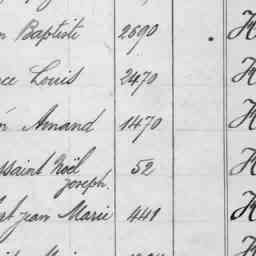 n Baptiste 2590 H
ce Louis 2470 H
n Amand 1470 H
ssaint Noël 52 H
Joseph.
Jean Marie 441 H